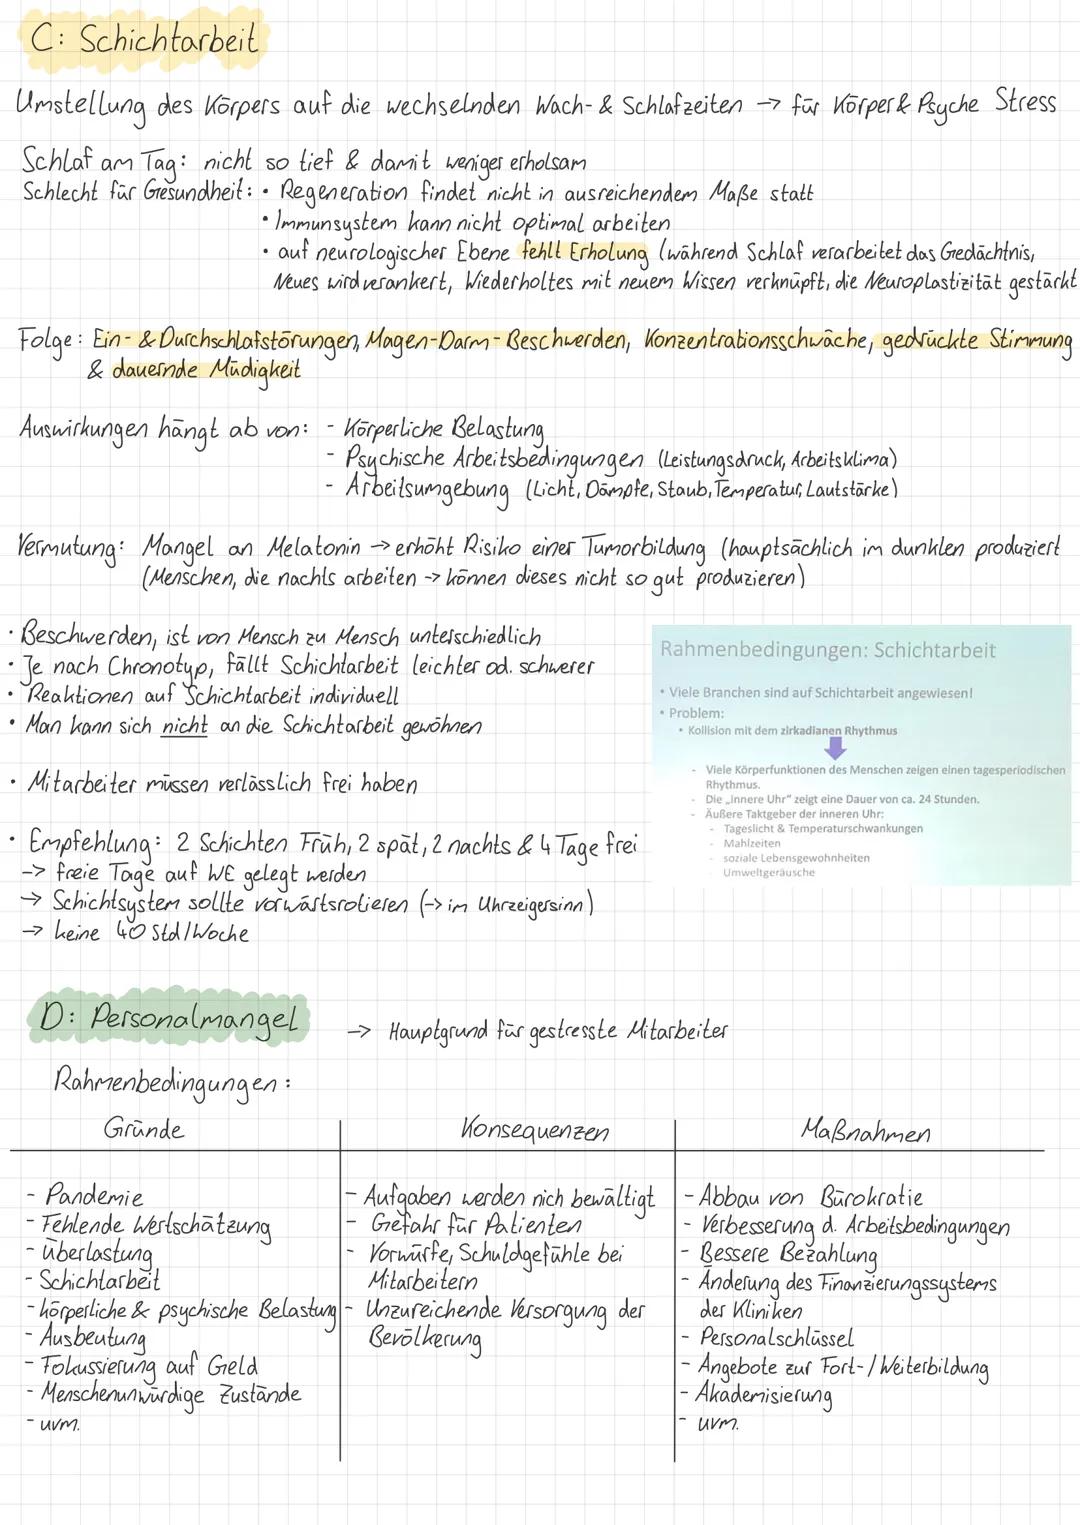 C: Schichtarbeit
Umstellung des Körpers auf die wechselnden Wach- & Schlafzeiten → für Körper & Psyche Stress
Schlaf am Tag: nicht so tief & damit weniger erholsam
Schlecht für Gesundheit: • Regeneration findet nicht in ausreichendem Maße statt
• Immunsystem kann nicht optimal arbeiten
• auf neurologischer Ebene fehlt Erholung (während Schlaf verarbeitet das Gedächtnis,
Neues wird verankert, Wiederholtes mit neuem Wissen verknüpft, die Neuroplastizität gestärkt
Folge: Ein- & Durchschlafstörungen, Magen-Darm-Beschwerden, Konzentrationsschwäche, gedrückte Stimmung
& dauernde Müdigkeit
Auswirkungen hängt ab von: - Körperliche Belastung
- Psychische Arbeitsbedingungen (Leistungsdruck, Arbeitsklima)
- Arbeitsumgebung (Licht, Dämpfe, Staub, Temperatur, Lautstärke)
Vermutung: Mangel an Melatonin → erhöht Risiko einer Tumorbildung (hauptsächlich im dunklen produziert
(Menschen, die nachts arbeiten -> können dieses nicht so gut produzieren)
• Beschwerden, ist von Mensch zu Mensch unterschiedlich
• Je nach Chronotyp, fällt Schichtarbeit leichter od. schwerer
• Reaktionen auf Schichtarbeit individuell
• Man kann sich nicht an die Schichtarbeit gewöhnen
• Mitarbeiter müssen verlässlich frei haben
• Empfehlung: 2 Schichten Früh, 2 spät, 2 nachts & 4 Tage frei
-> freie Tage auf WE gelegt werden
→ Schichtsystem sollte vorwärtsrotieren (-> im Uhrzeigersinn)
→ keine 40 Std/Woche
Rahmenbedingungen: Schichtarbeit
• Viele Branchen sind auf Schichtarbeit angewiesen!
• Problem:
• Kollision mit dem zirkadianen Rhythmus
- Viele Körperfunktionen des Menschen zeigen einen tagesperiodischen
Rhythmus.
- Die „innere Uhr" zeigt eine Dauer von ca. 24 Stunden.
- Äußere Taktgeber der inneren Uhr:
- Tageslicht & Temperaturschwankungen
- Mahlzeiten
- soziale Lebensgewohnheiten
- Umweltgeräusche
D: Personalmangel → Hauptgrund für gestresste Mitarbeiter
Rahmenbedingungen:
Gründe
- Pandemie
- Fehlende Wertschätzung
- Überlastung
- Schichtarbeit
- körperliche & psychische Belastung
- Ausbeutung
- Fokussierung auf Geld
- Menschenunwürdige Zustände
- uvm.
Konsequenzen
- Aufgaben werden nich bewältigt
- Gefahr für Patienten
- Vorwürfe, Schuldgefühle bei
Mitarbeitern
- Unzureichende Versorgung der
Bevölkerung
Maßnahmen
- Abbau von Bürokratie
- Verbesserung d. Arbeitsbedingungen
- Bessere Bezahlung
- Änderung des Finanzierungssystems
der Kliniken
- Personalschlüssel
- Angebote zur Fort-/Weiterbildung
- Akademisierung
- uvm.